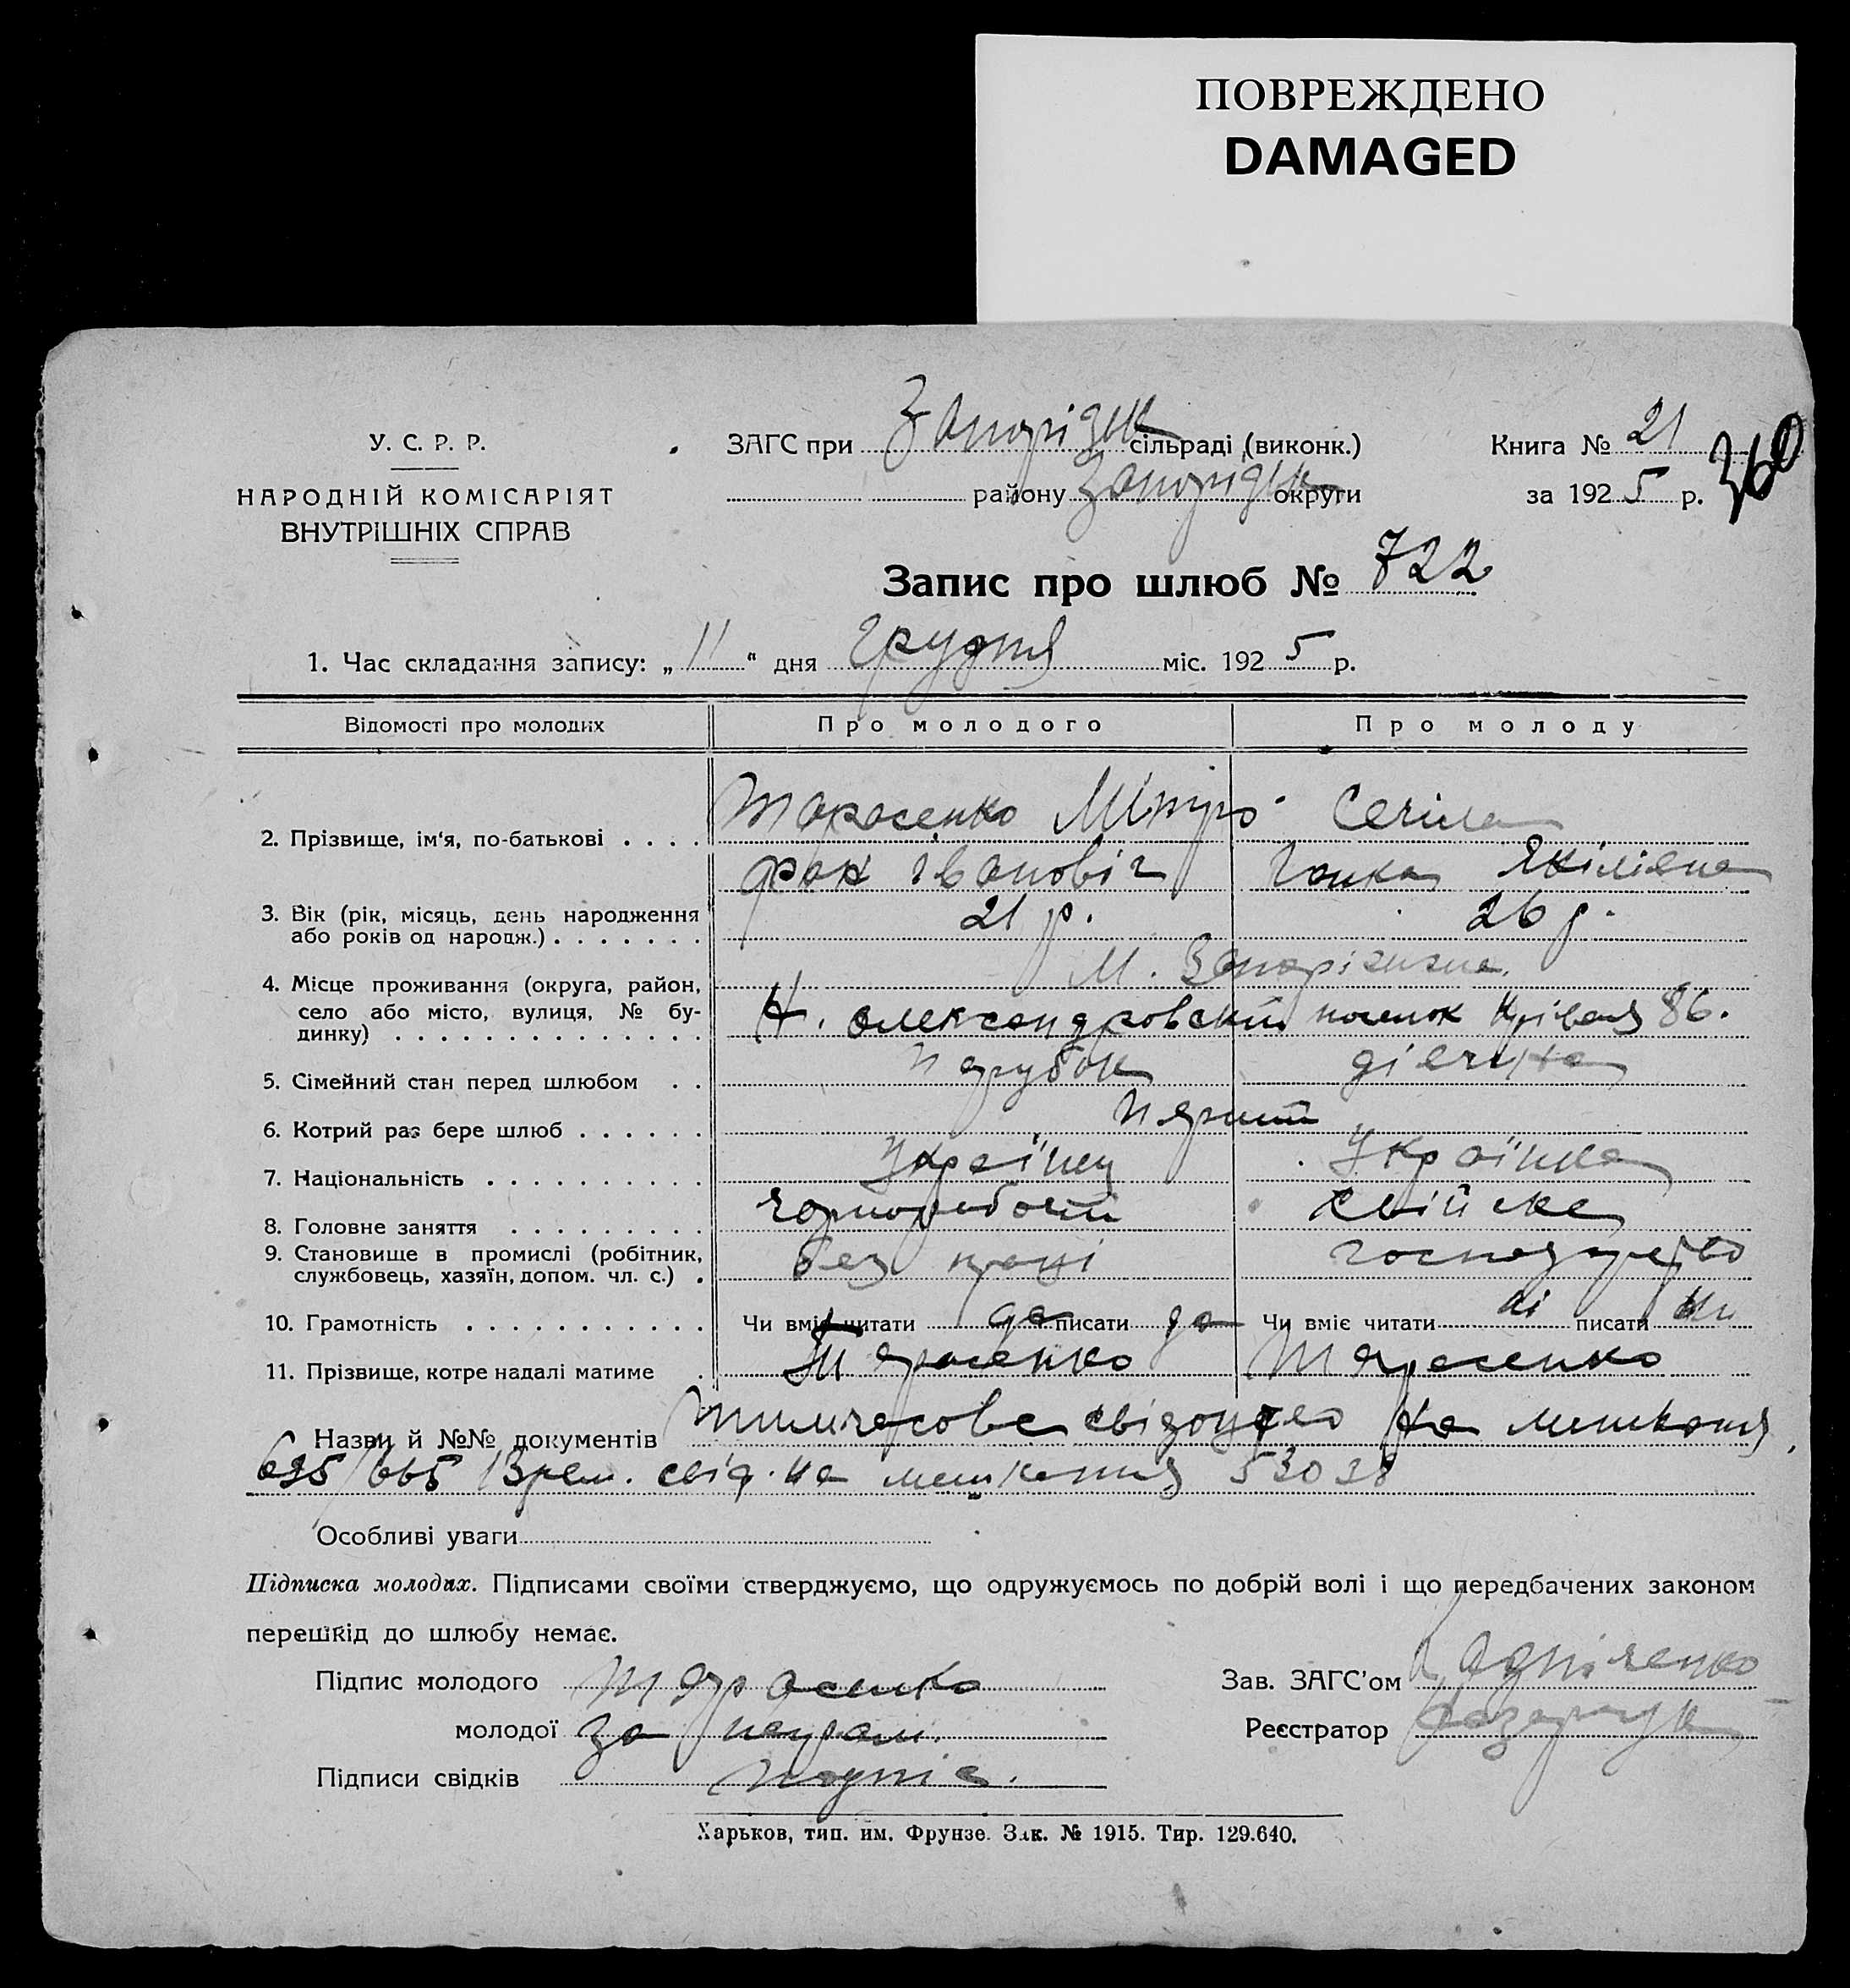 ПОВРЕЖДЕНО
DAMAGED
У. С. Р. Р.
НАРОДНІЙ КОМІСАРІЯТ
ВНУТРІШНІХ СПРАВ
ЗАГС при Запорізьк сільраді (виконк.)
району Запорізьк округи
Книга № 21
за 1925 р.
360
Запис про шлюб № 722
1. Час складання запису: „11“ дня грудня міс. 1925 р.
Відомості про молодих Про молодого Про молоду
2. Прізвище, ім'я, по-батькові . . . . Тарасенко Мітро-
фан Івановіч Ганка
3. Вік (рік, місяць, день народження
або років од народж.) . . . . . . . 21 р. 26 р.
4. Місце проживання (округа, район,
село або місто, вулиця, № бу-
динку) . . . . . . . . . . . . . . М.
Н. Олександровский 86.
5. Сімейний стан перед шлюбом . . парубок дівчина
6. Котрий раз бере шлюб . . . . . . Перший
7. Національність . . . . . . . . . . Українец Українка
8. Головне заняття . . . . . . . . . чорноробочий
9. Становище в промислі (робітник,
службовець, хазяїн, допом. чл. с.) . без праці господарство
10. Грамотність . . . . . . . . . . . Чи вміє читати да писати да Чи вміє читати ні писати ни
11. Прізвище, котре надалі матиме . Тарасенко Тарасенко
Назви й №№ документів тимчасове свідоцтво на мешкання
695/665 Врем. свід. на мешкання 53038
Особливі уваги
Підписка молодих. Підписами своїми стверджуємо, що одружуємось по добрій волі і що передбачених законом
перешкід до шлюбу немає.
Підпис молодого Тарасенко
молодої за неграм.
Підписи свідків
Зав. ЗАГС'ом
Реєстратор
Харьков, тип. им. Фрунзе. Зак. № 1915. Тир. 129.640.